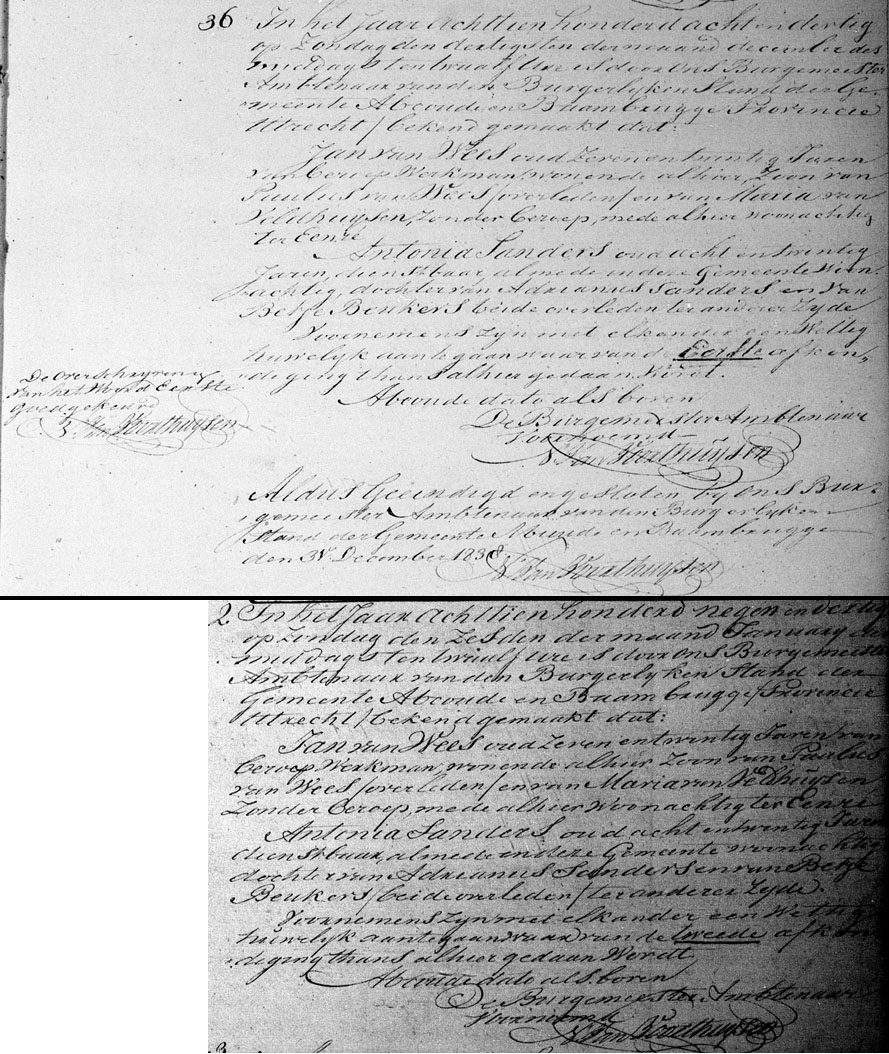 36 In het Jaar Achttien honderd acht en dertig
op Zondag den dertigsten der maand december des
middags ten twaalf Ure is door Ons Burgemeester
Ambtenaar van den Burgerlyken Stand der Ge-
meente Abcoude en Baambrugge Provincie
Utrecht / bekend gemaakt dat:
Jan van Wees oud Zeven en twintig Jaren
van beroep Werkman, wonende alhier, Zoon van
Paulus van Wees / overleden / en van Maria van
Veldhuysen, Zonder beroep, mede alhier woonachtig
ter Eenre
Antonia Sanders oud acht en twintig
Jaren, dienstbaar, almede in deze Gemeente woon-
achtig, dochter van Adrianus Sanders en van
Betje Beukers beide overleden ter anderer Zyde
Voornemens zyn met elkander een Wettig
huwelyk aan te gaan waar van de Eerste afkon-
diging thans alhier gedaan Wordt.
Abcoude dato als boven
De Burgemeester Ambtenaar
Voornoemd
De overschryving
van het Woord Eerste
goedgekeurd
Aldus Geeindigd en gesloten by Ons Bur-
gemeester Ambtenaar van den Burgerlyken
Stand der Gemeente Abcoude en Baambrugge
den 31 December 1838.
2 In het Jaar Achttien honderd negen en dertig
op zondag den Zesden der maand January des
middags ten twaalf Ure is door Ons Burgemeester
Ambtenaar van den Burgerlyken Stand der
Gemeente Abcoude en Baambrugge / Provincie
Utrecht / bekend gemaakt dat:
Jan van Wees oud Zeven en twintig Jaren / van
beroep Werkman, wonende alhier Zoon van Paulus
van Wees / overleden / en van Maria van Veldhuysen
Zonder beroep, mede alhier Woonachtig ter Eenre
Antonia Sanders oud acht en twintig Jaren
dienstbaar, almede in deze Gemeente woonachtig
dochter van Adrianus Sanders en van Betje
Beukers / beide overleden / ter anderer Zyde.
Voornemens zyn met elkander een Wettig
huwelyk aan te gaan waar van de tweede afkon
diging thans alhier gedaan Wordt
Abcoude dato als boven
De Burgemeester Ambtenaar
Voornoemd
3